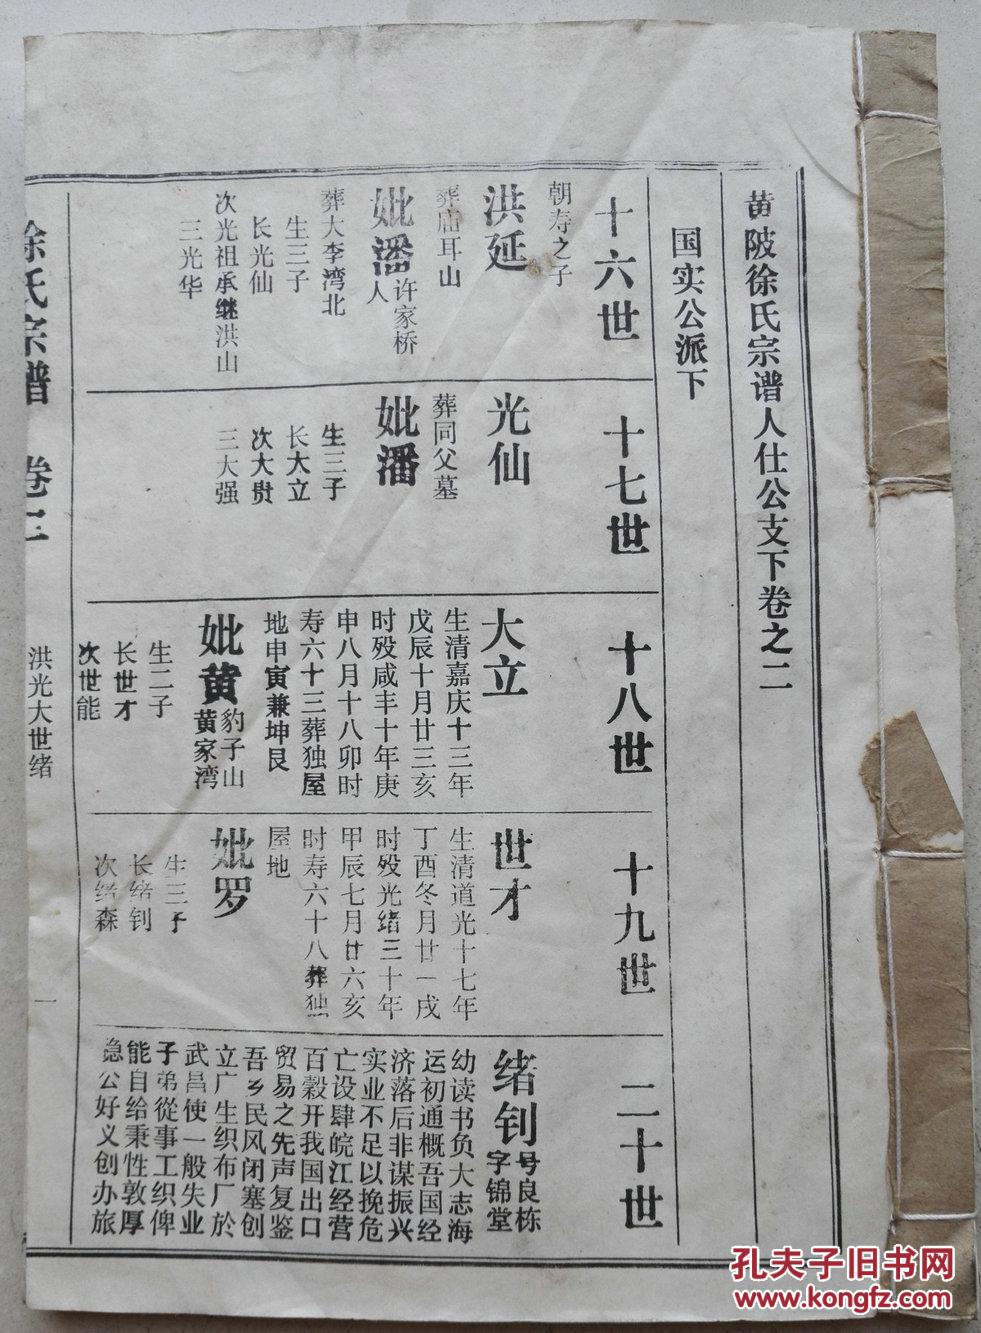 黄陂徐氏宗谱人仕公支下卷之二
国实公派下
十六世
朝寿之子
洪延
葬庙耳山
妣潘
许家桥
人
葬大李湾北
生三子
长光仙
次光祖承继洪山
三光华
十七世
光仙
葬同父墓
妣潘
生三子
长大立
次大贵
三大强
十八世
大立
生清嘉庆十三年
戊辰十月廿三亥
时殁咸丰十年庚
申八月十八卯时
寿六十三葬独屋
地申寅兼坤艮
妣黄
豹子山
黄家湾
生二子
长世才
次世能
十九世
世才
生清道光十七年
丁酉冬月廿一戌
时殁光绪三十年
甲辰七月廿六亥
时寿六十八葬独
屋地
妣罗
生三子
长绪钊
次绪森
二十世
绪钊
号良栋
字锦堂
幼读书负大志海
运初通概吾国经
济落后非谋振兴
实业不足以挽危
亡设肆皖江经营
百穀开我国出口
贸易之先声复鉴
吾乡民风闭塞创
立广生织布厂於
武昌使一般失业
子弟從事工织俾
能自给秉性敦厚
急公好义创办旅
徐氏宗谱 卷二
洪光大世绪
一
孔夫子旧书网
www.kongfz.com